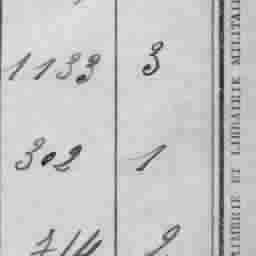 1133 3
302 1
714 2
IMERIE ET LIBRAIRIE MILITAI